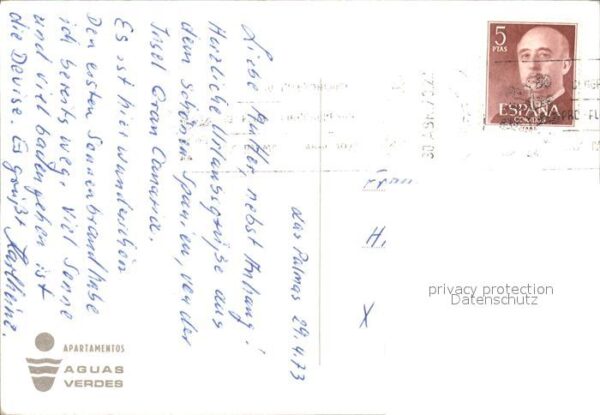 Las Palmas 29.4.73
Liebe Mutter, nebst Anhang!
Herzliche Urlaubsgrüße aus
dem schönen Spanien, von der
Insel Gran Canaria.
Es ist hier wunderschön
Den ersten Sonnenbrand habe
ich bereits weg. Viel Sonne
und viel baden gehen ist
die Devise. Es grüßt Karlheinz.
5
PTAS
ESPAÑA
CORREOS
Frau
H.
X
privacy protection
Datenschutz
APARTAMENTOS
AGUAS
VERDES